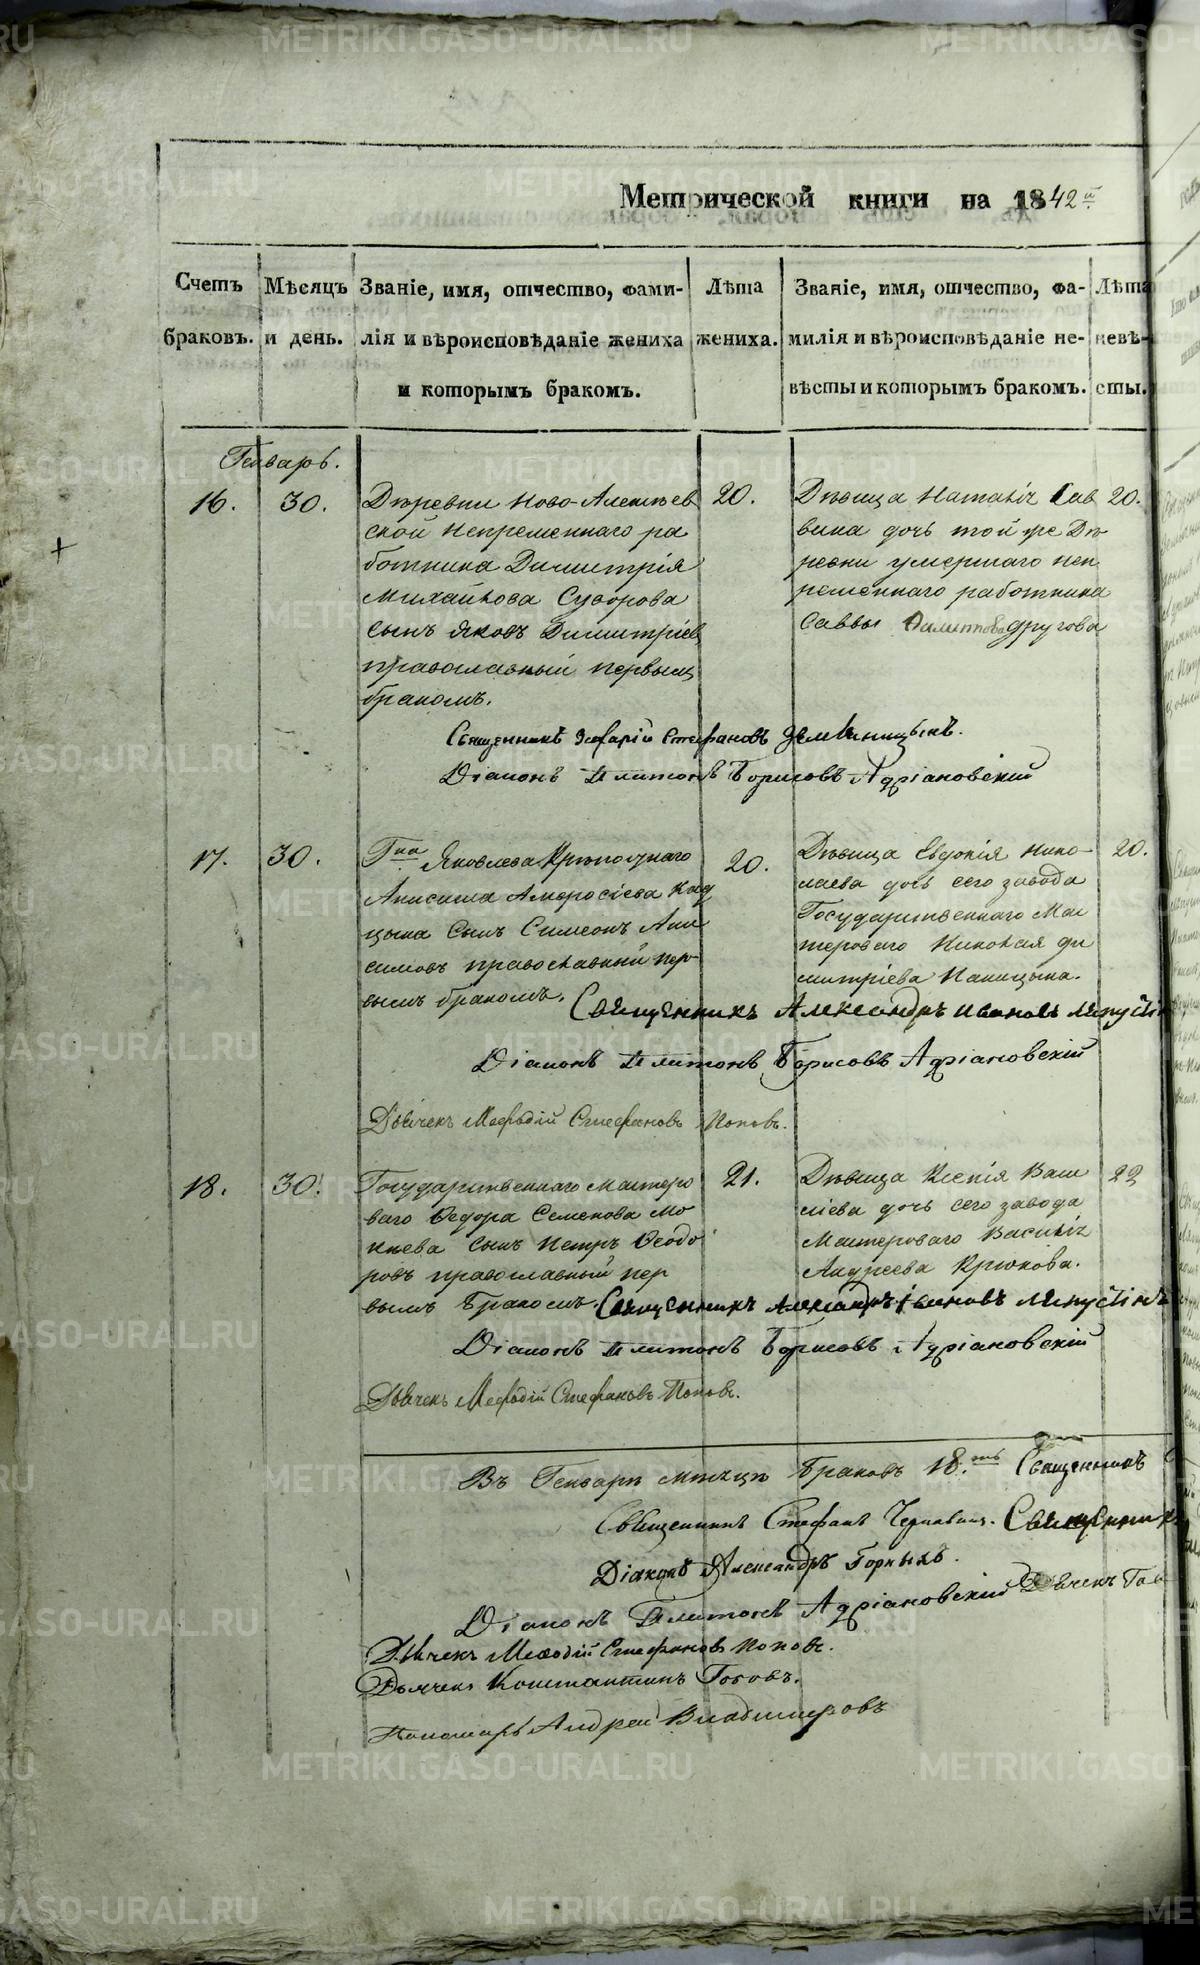 Метрической книги на 1842й
Счетъ браковъ.
Мѣсяцъ и день.
Званіе, имя, отчество, фами-
лія и вѣроисповѣданіе жениха
и которымъ бракомъ.
Лѣта
жениха.
Званіе, имя, отчество, фа-
милія и вѣроисповѣданіе не-
вѣсты и которымъ бракомъ.
Лѣта
невѣ-
сты.
Генварь.
16.
30.
Деревни Ново-Алексѣев
ской непременнаго ра
ботника Димитрія
Михайлова Суворова
сынъ Яковъ Димитріев
православный первымъ
бракомъ.
20.
Дѣвица Наталія Сав
вина дочь той же Де
ревни умершаго неп
ременнаго работника
Саввы Филиппова другова
20.
Священникъ Захарій Стефановъ Земляницынъ.
Діаконъ Платонъ Борисовъ Адріановскій
17.
30.
Гна Яковлева Крѣпостнаго
Анисима Амвросіева Кад
цына сынъ Симеонъ Ани
симовъ православный пер-
вымъ бракомъ.
20.
Дѣвица Евдокія Нико-
лаева дочь сего завода
Государственнаго Мас
тероваго Николая Ди
митріева Паницына.
20.
Священникъ Александръ Ивановъ Ляпусти
Діаконъ Платонъ Борисовъ Адріановскій
Дьячекъ Мефодій Стефановъ Поповъ.
18.
30.
Государственнаго мастеро
ваго Ѳедора Семенова Мо
кѣева сынъ Петръ Ѳеодо
ровъ православный пер
вымъ бракомъ.
21.
Дѣвица Ксенія Васи
ліева дочь сего завода
Мастероваго Василія
Андреева Крюкова.
22
Священникъ Александръ Ивановъ Ляпустинъ
Діаконъ Платонъ Борисовъ Адріановскій
Дьячекъ Мефодій Стефановъ Поповъ.
Въ Генварѣ мѣсяцѣ браковъ 18.ть Священникъ
Священникъ Стефанъ Священник
Діаконъ Александръ Горныхъ.
Діаконъ Платонъ Адріановскій Дьячекъ
Дьячекъ Меѳодій Стефановъ Поповъ.
Дьячекъ Константинъ
Пономарь Андрей Владимировъ
METRIKI.GASO-URAL.RU